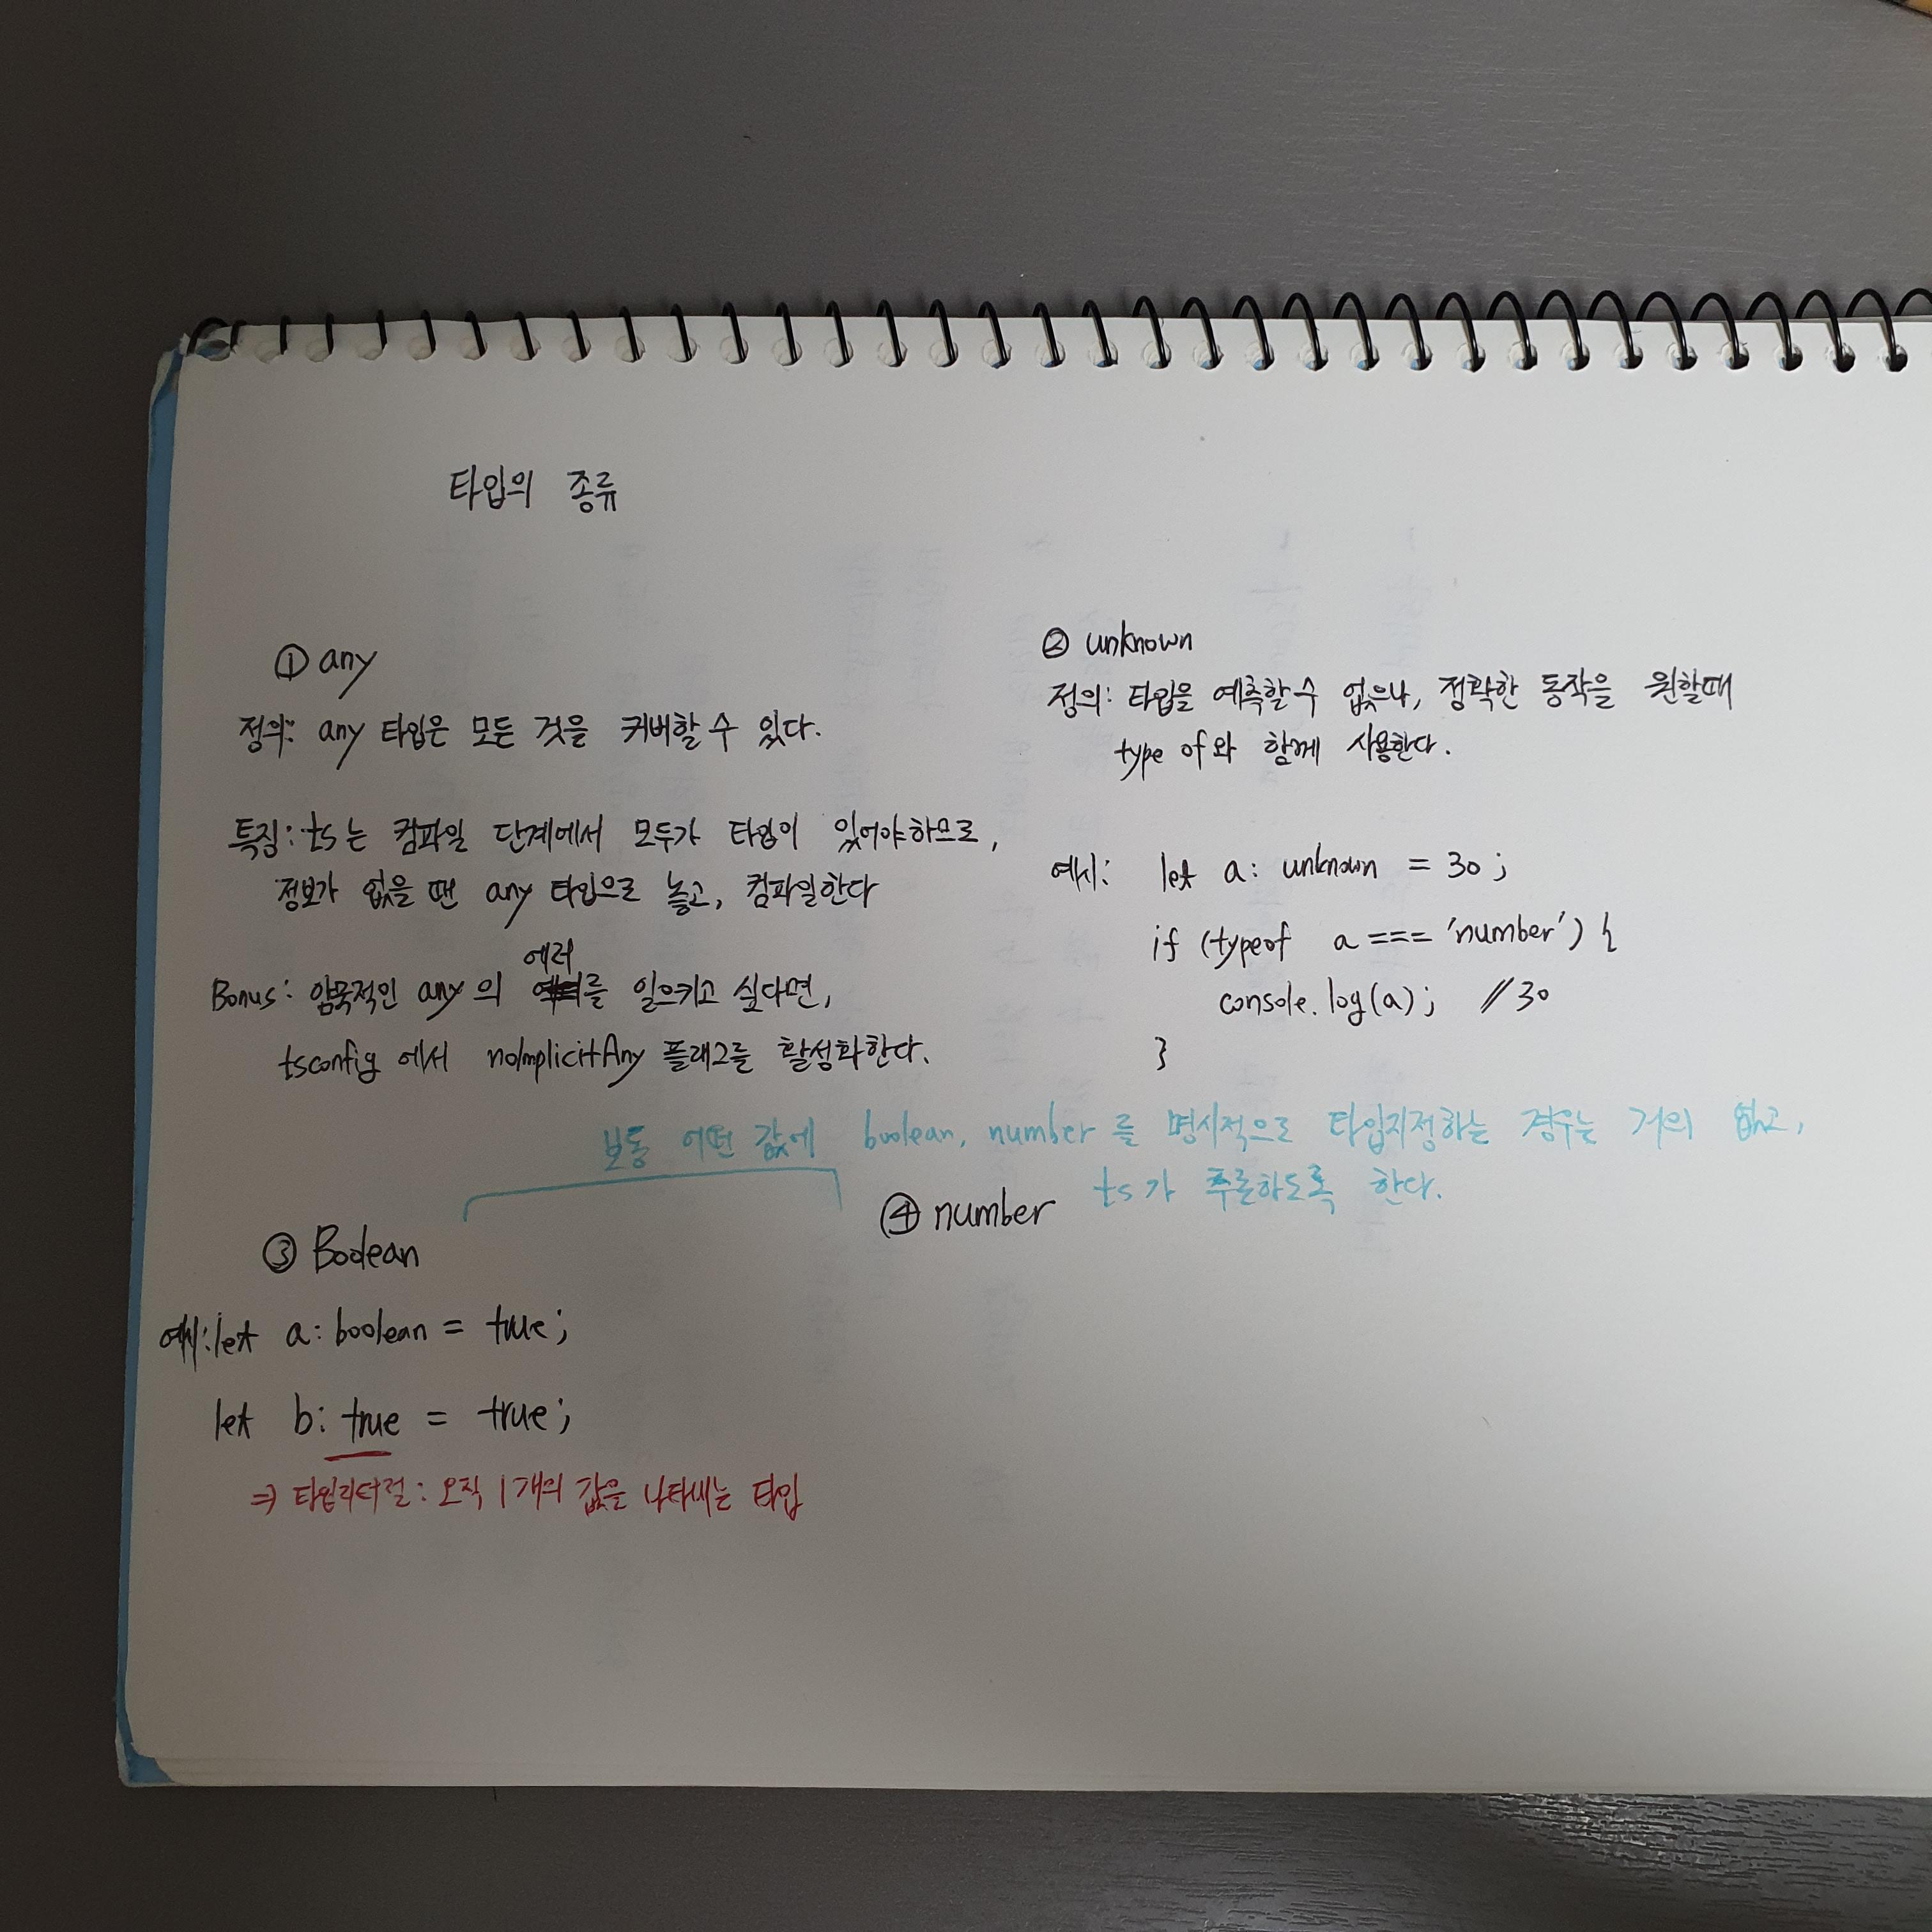 타입의 종류
① any
정의: any 타입은 모든 것을 커버할 수 있다.
특징: ts는 컴파일 단계에서 모두가 타입이 있어야하므로,
정보가 없을 땐 any 타입으로 놓고, 컴파일한다
에러
Bonus: 암묵적인 any의 를 일으키고 싶다면,
tsconfig 에서 noImplicitAny 플래그를 활성화한다.
② unknown
정의: 타입을 예측할 수 없으나, 정확한 동작을 원할때
type of와 함께 사용한다.
예시: let a: unknown = 30;
if (typeof a === 'number') {
console.log(a); //30
}
보통 어떤 값에 boolean, number 를 명시적으로 타입지정하는 경우는 거의 없고,
ts가 추론하도록 한다.
③ Boolean
예시: let a: boolean = true;
let b: true = true;
⇒ 타입리터럴: 오직 1개의 값을 나타내는 타입
④ number